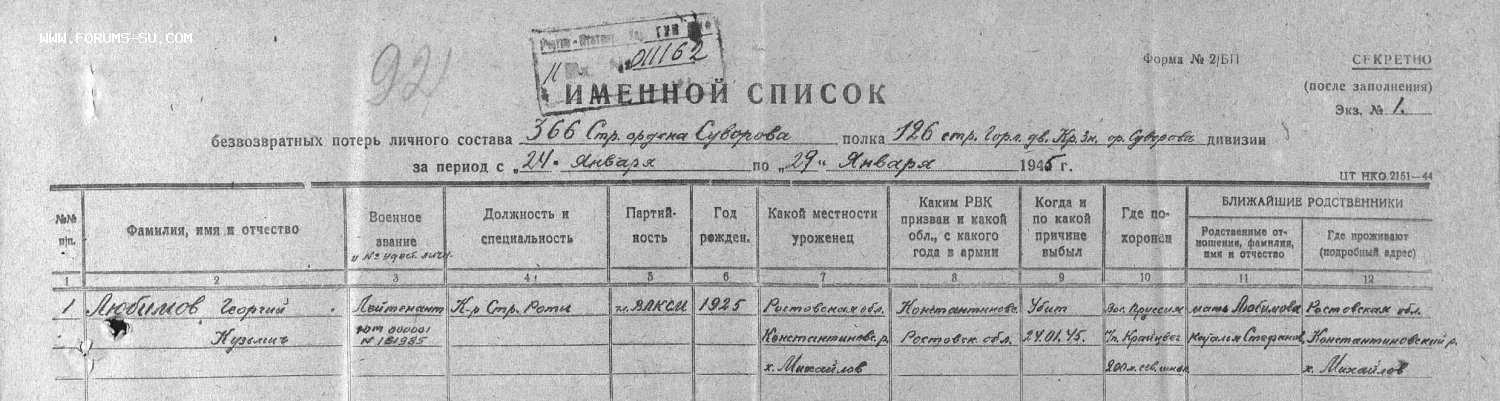 WWW.FORUMS-SU.COM
92
011162
Форма № 2/БП
СЕКРЕТНО
(после заполнения)
Экз. № 1.
ИМЕННОЙ СПИСОК
безвозвратных потерь личного состава 366 Стр. ордена Суворова полка 126 стр. Горл. дв. Кр. Зн. ор. Суворова дивизии
за период с „24" Января по „29" Января 1945 г.
ЦТ НКО 2151—44
№№ п/п. Фамилия, имя и отчество Военное звание и № удост. личн. Должность и специальность Партийность Год рожден. Какой местности уроженец Каким РВК призван и какой обл., с какого года в армии Когда и по какой причине выбыл Где похоронен БЛИЖАЙШИЕ РОДСТВЕННИКИ
Родственные отношения, фамилия, имя и отчество Где проживают (подробный адрес)
1 2 3 4 5 6 7 8 9 10 11 12
1 Любимов Георгий Лейтенант К-р Стр. Роты чл. ВЛКСМ 1925 Ростовская обл. Константиновс. Убит Вос. Пруссия мать Любимова Ростовская обл.
Кузьмич № 181985 Константиновс. р. Ростовск. обл. 24.01.45. Г/п. Крайцвег Наталья Стефанов. Константиновский р.
х. Михайлов 200 м. сев. х. Михайлов